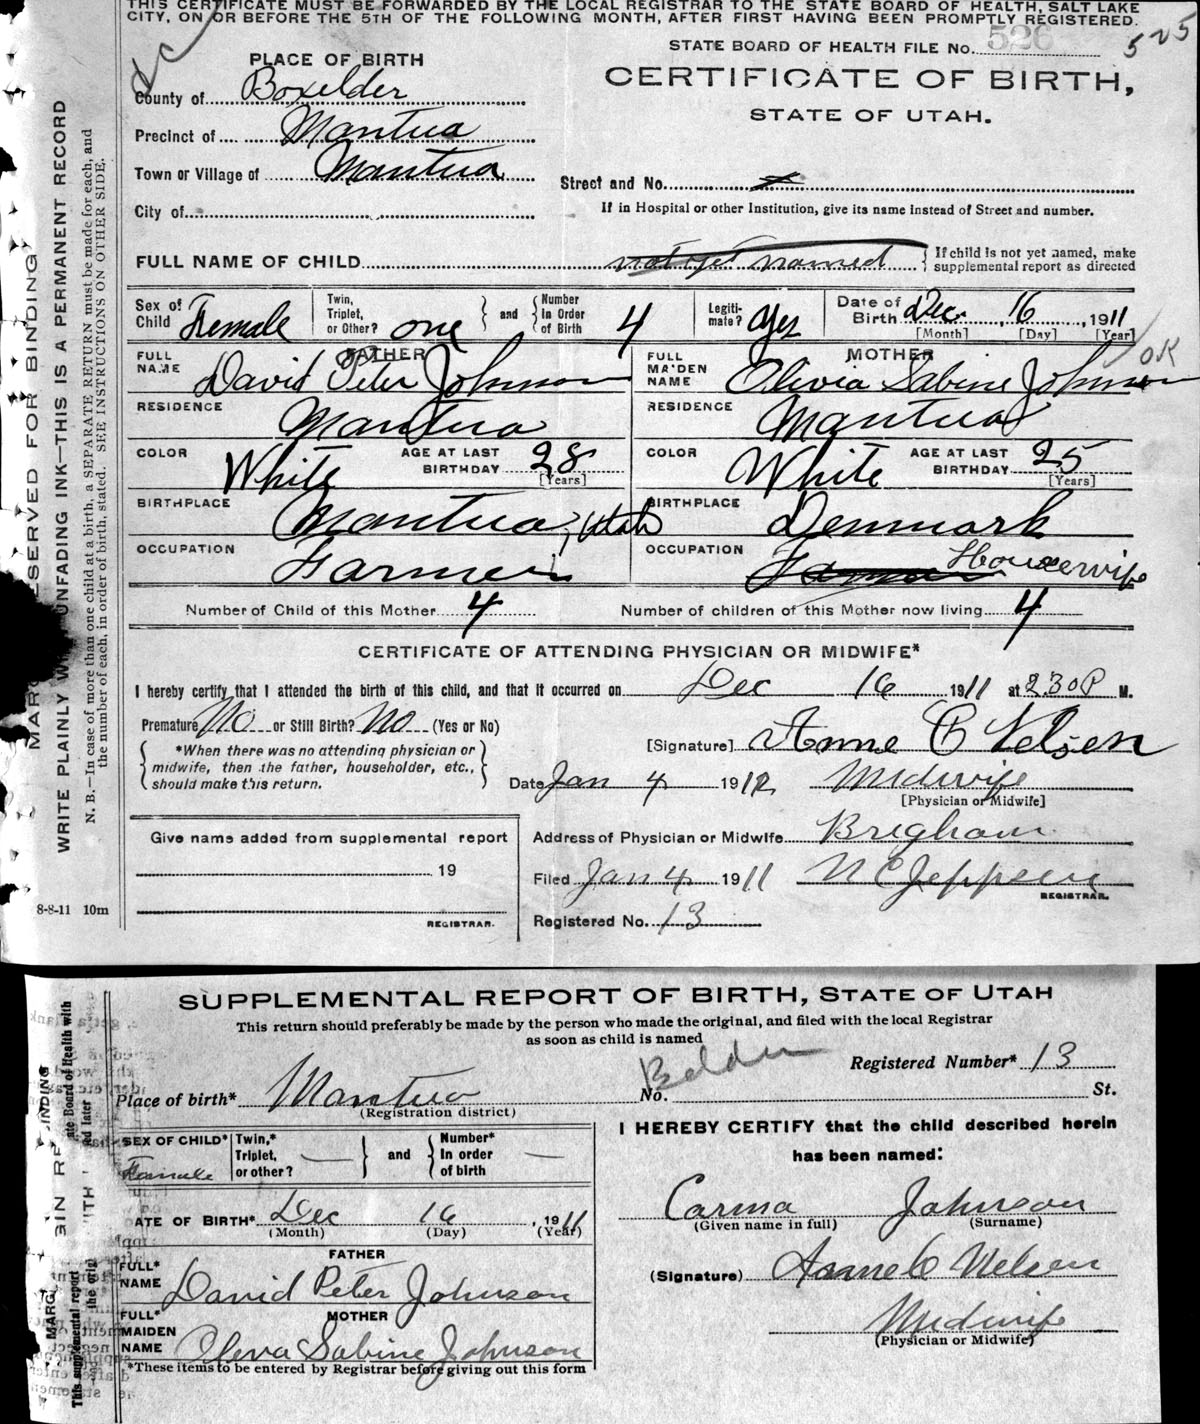 THIS CERTIFICATE MUST BE FORWARDED BY THE LOCAL REGISTRAR TO THE STATE BOARD OF HEALTH, SALT LAKE
CITY, ON OR BEFORE THE 5TH OF THE FOLLOWING MONTH, AFTER FIRST HAVING BEEN PROMPTLY REGISTERED.
STATE BOARD OF HEALTH FILE No. 526 525
PLACE OF BIRTH
CERTIFICATE OF BIRTH,
STATE OF UTAH.
County of Boxelder
Precinct of Mantua
Town or Village of Mantua
Street and No.
City of
If in Hospital or other Institution, give its name instead of Street and number.
FULL NAME OF CHILD not yet named { If child is not yet named, make
supplemental report as directed
Sex of Child Female Twin, Triplet, or Other? one } and { Number In Order of Birth 4 Legiti-mate? Yes Date of Birth Dec. 16, 1911
[Month] [Day] [Year]
OK
FATHER MOTHER
FULL NAME David Peter Johnson FULL MAIDEN NAME Olivia Sabine Johnson
RESIDENCE Mantua RESIDENCE Mantua
COLOR White AGE AT LAST BIRTHDAY 28 [Years] COLOR White AGE AT LAST BIRTHDAY 25 [Years]
BIRTHPLACE Mantua, Utah BIRTHPLACE Denmark
OCCUPATION Farmer OCCUPATION Farmer Housewife
Number of Child of this Mother 4 Number of children of this Mother now living 4
CERTIFICATE OF ATTENDING PHYSICIAN OR MIDWIFE*
I hereby certify that I attended the birth of this child, and that it occurred on Dec 16 1911 at 2 30 P M.
Premature No or Still Birth? No (Yes or No)
[Signature] Anne C Nelsen
{ *When there was no attending physician or
midwife, then the father, householder, etc.,
should make this return. }
Date Jan 4 1912 Midwife
[Physician or Midwife]
Give name added from supplemental report
19
REGISTRAR.
Address of Physician or Midwife Brigham
Filed Jan 4 1911 N C Jeppsen
REGISTRAR.
Registered No. 13
8-8-11 10m
MARGIN RESERVED FOR BINDING
WRITE PLAINLY WITH UNFADING INK—THIS IS A PERMANENT RECORD
N. B.—In case of more than one child at a birth, a SEPARATE RETURN must be made for each, and
the number of each, in order of birth, stated. SEE INSTRUCTIONS ON OTHER SIDE.
SUPPLEMENTAL REPORT OF BIRTH, STATE OF UTAH
This return should preferably be made by the person who made the original, and filed with the local Registrar
as soon as child is named
Registered Number* 13
Place of birth* Mantua No. St.
(Registration district)
SEX OF CHILD* Female Twin,* Triplet, or other? } and { Number* In order of birth
I HEREBY CERTIFY that the child described herein
has been named:
Carma Johnson
(Given name in full) (Surname)
ATE OF BIRTH* Dec 16, 1911
(Month) (Day) (Year)
FATHER
FULL* NAME David Peter Johnson
(Signature) Anne C Nelsen
MOTHER
FULL* MAIDEN NAME Oleva Sabine Johnson
Midwife
(Physician or Midwife)
*These items to be entered by Registrar before giving out this form